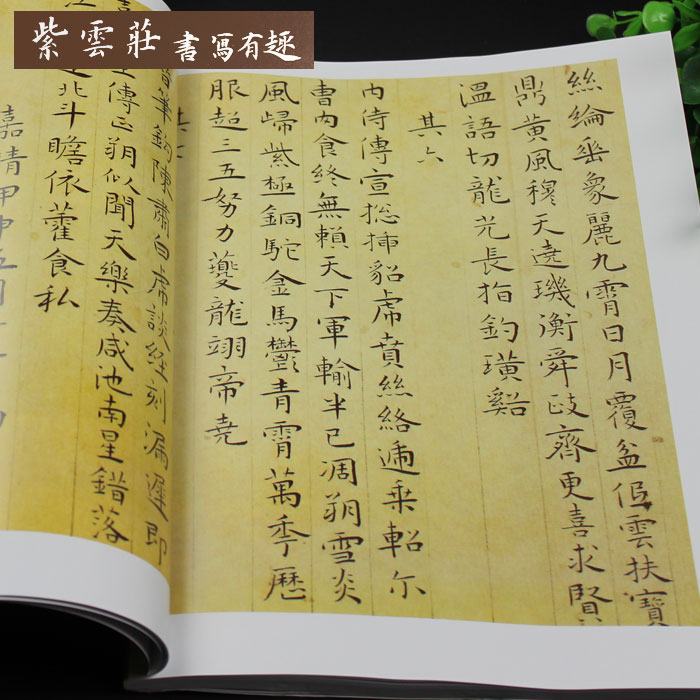 紫雲莊 書寫有趣
絲綸垂象麗九霄日月覆盆雲扶寶
鼎黃風穆天遶璣衡舜政齊更喜求賢
溫語切龍光長指釣璜谿
其六
內侍傳宣捴插貂虎賁絲絡逓乗軺尓
曹內食終無賴天下軍輸半已凋朔雪炎
風歸紫極銅駝金馬鬱青霄萬季歷
服超三五努力夔龍翊帝堯
其
筆鈞陳肅白虎談經刻漏遲即
傳正朔似聞天樂奏咸池南星錯落
北斗瞻依藿食私
嘉靖甲申五月